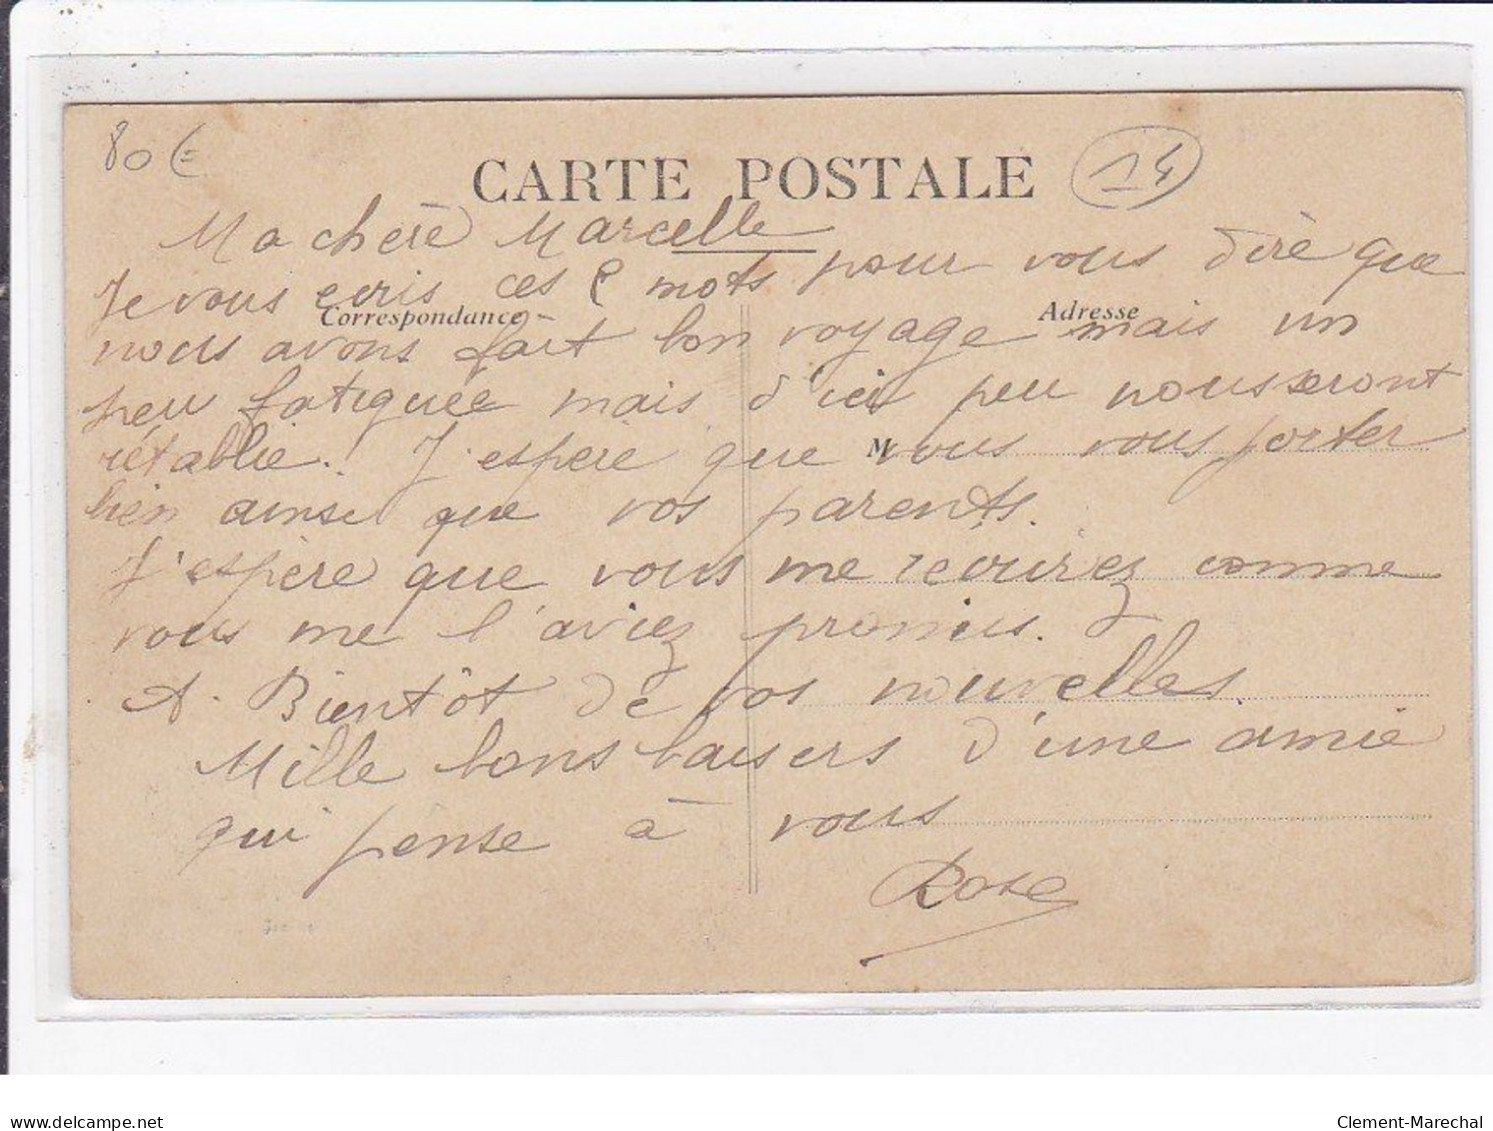 80 €
CARTE POSTALE
14
Ma chère Marcelle
Je vous ecris ces 2 mots pour vous dire que
Correspondance
Adresse
nous avons fait bon voyage mais un
peu fatiguée mais d'ici peu nous seront
rétablie! J'espère que vous vous porter
M
bien ainsi que vos parents.
J'espère que vous me recourez comme
vous me l'aviez promius.
A. Bientôt de vos nouvelles.
Mille bons baisers d'une amie
qui pense à vous
Rose
www.delcampe.net
Clement-Marechal